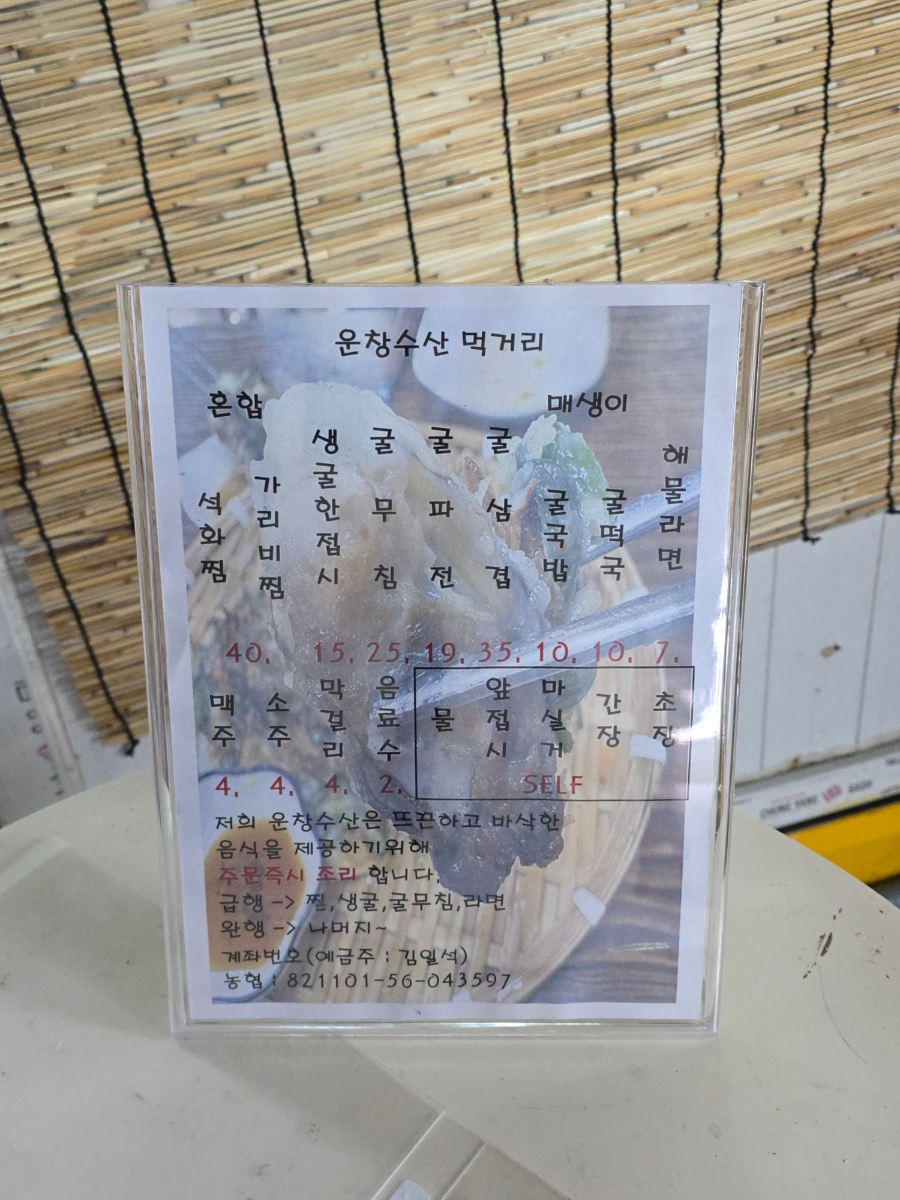 운창수산 먹거리
혼합 매생이
석화찜
가리비찜
생굴한접시
굴무침
굴파전
굴삼겹
굴국밥
굴떡국
해물라면
40. 15. 25. 19. 35. 10. 10. 7.
맥주
소주
막걸리
음료수
물
앞접시
마실거
간장
초장
4. 4. 4. 2. SELF
저희 운창수산은 뜨끈하고 바삭한
음식을 제공하기위해
주문즉시 조리 합니다.
급행 -> 찜,생굴,굴무침,라면
완행 -> 나머지~
계좌번호(예금주 : 김일석)
농협 : 821101-56-043597